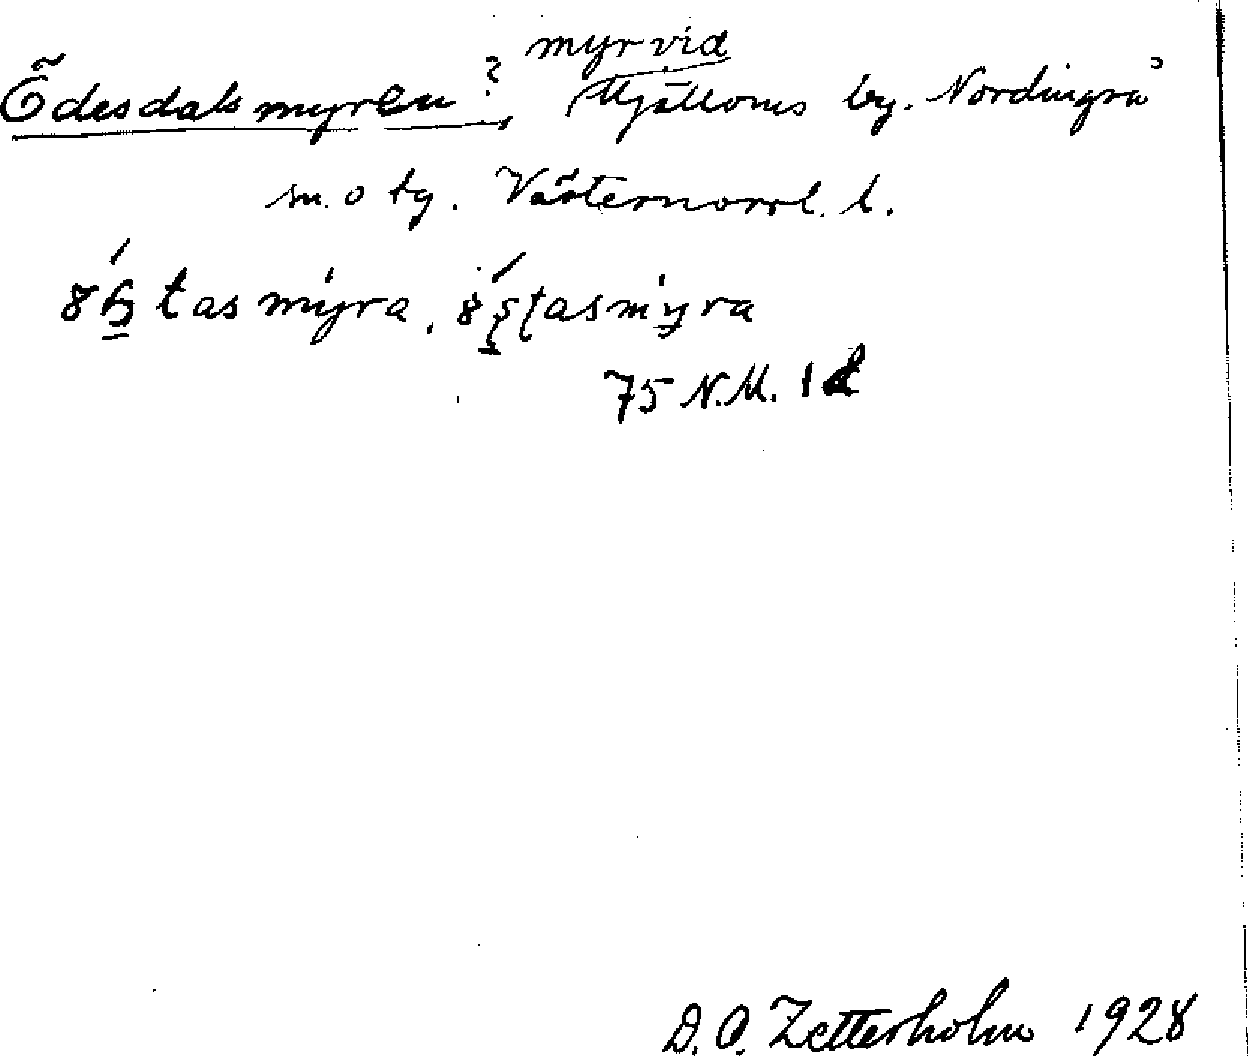 Ödesdalsmyren?, myr vid Hjälloms by. Nordingrå
sn. o tg. Västernorrl. l.
tasmyra, tasmyra
75 N.M. 1d
D. O. Zetterholm 1928